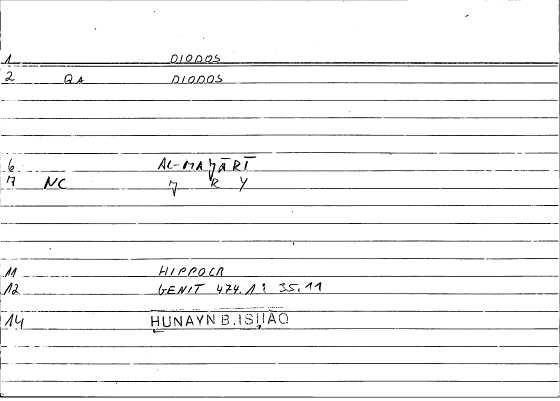 1 DIODOS
2 QA DIODOS
6
7 NC R Y
11 HIPPOCR
12 GENIT 474.1 : 35.11
14 ḤUNAYN B. ISḤĀQ